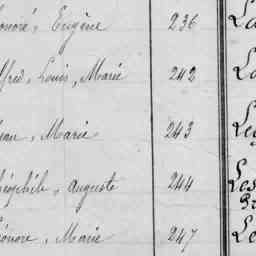 onoré, Eugène 236 La
lfred, Louis, Marie 242 La
ean, Marie 243 Le
héophile, Auguste 244 Les
éonore, Marie 247 Le